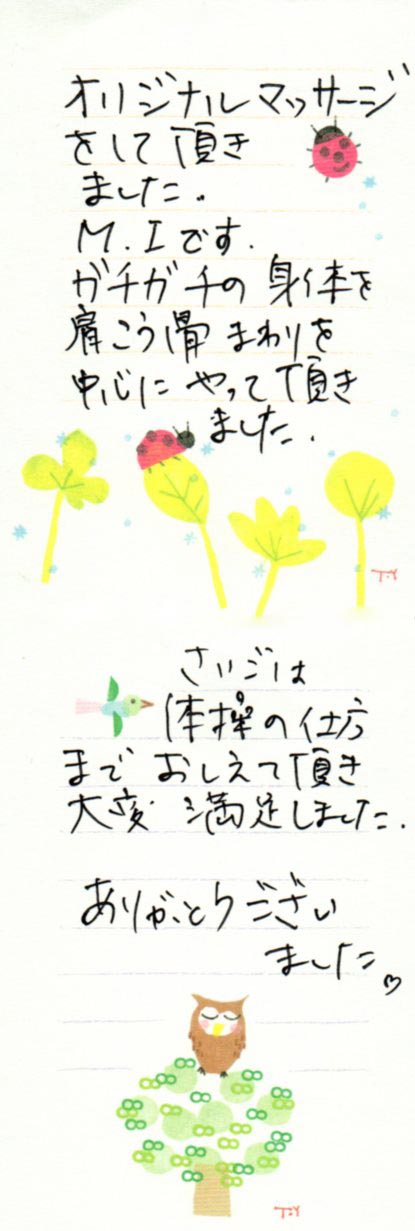 オリジナルマッサージ
をして頂き
ました。
M.Iです.
ガチガチの身体を
肩こう骨まわりを
中心にやって頂き
ました.
T.Y
さいごは
体操の仕方
まで おしえて頂き
大変 満足しました.
ありがとうござい
ました♡
T.Y